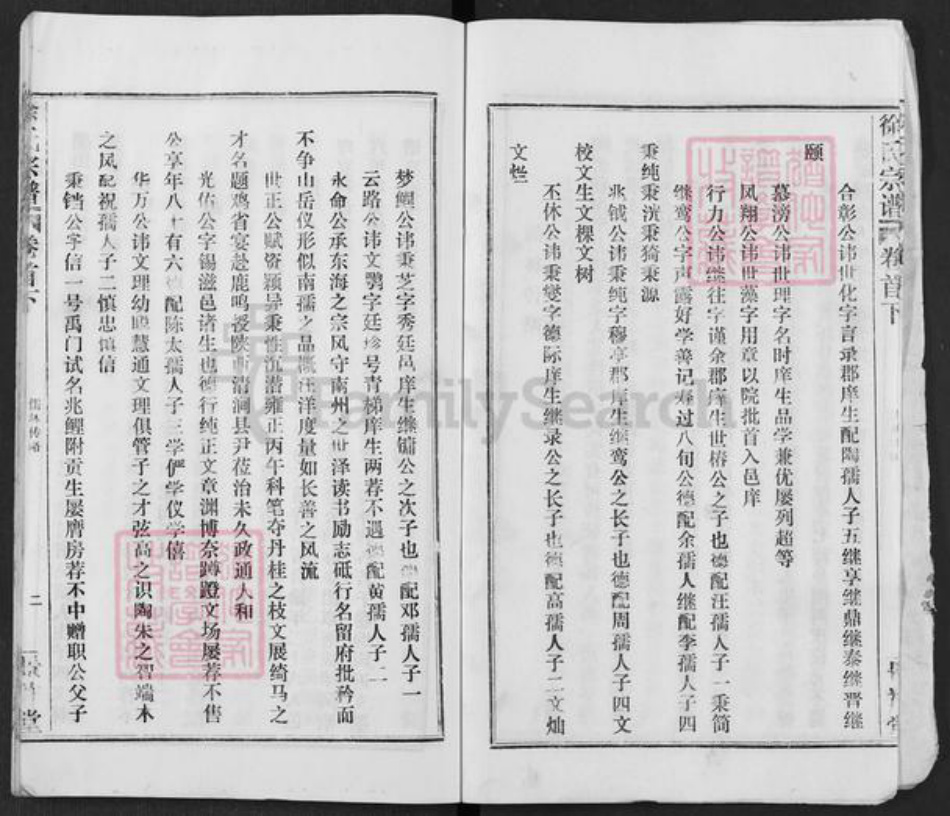 徐氏宗谱 卷首下
合彰公讳世化字言录郡庠生配陶孺人子五继享继鼎继泰继晋继
颐
慕滂公讳世理字名时庠生品学兼优屡列超等
凤翔公讳世藻字用章以院批首入邑庠
行力公讳继往字谨余郡庠生世椿公之子也德配汪孺人子一秉简
继鸾公字声露好学善记寿过八旬公德配余孺人继配李孺人子四
秉纯秉洸秉猗秉源
兆钺公讳秉纯字穆亭郡庠生继鸾公之长子也德配周孺人子四文
校文生文棵文树
丕休公讳秉燮字德际庠生继录公之长子也德配高孺人子二文灿
文烂
梦鲤公讳秉芝字秀廷邑庠生继镛公之次子也德配邓孺人子一
云路公讳文鹗字廷珍号青梯庠生两荐不遇德配黄孺人子二
永命公承东海之宗风守南州之世泽读书励志砥行名留府批矜而
不争山岳仪形似南孺之品概汪洋度量如长善之风流
世正公赋资颖异秉性沉潜雍正丙午科笔夺丹桂之枝文展绮马之
才名题鸡省宴赴鹿鸣授陕西清涧县尹莅治未久政通人和
光佑公字锡滋邑诸生也德行纯正文章渊博奈蹲蹬文场屡荐不售
公享年八十有六德配陈太孺人子三学俨学仪学僖
华万公讳文理幼聪慧通文理俱管子之才弦高之识陶朱之智端木
之风配祝孺人子二慎忠慎信
秉铛公字信一号禹门试名兆鲤附贡生屡膺房荐不中赠职公父子
徐氏宗谱 卷首下
二
堂